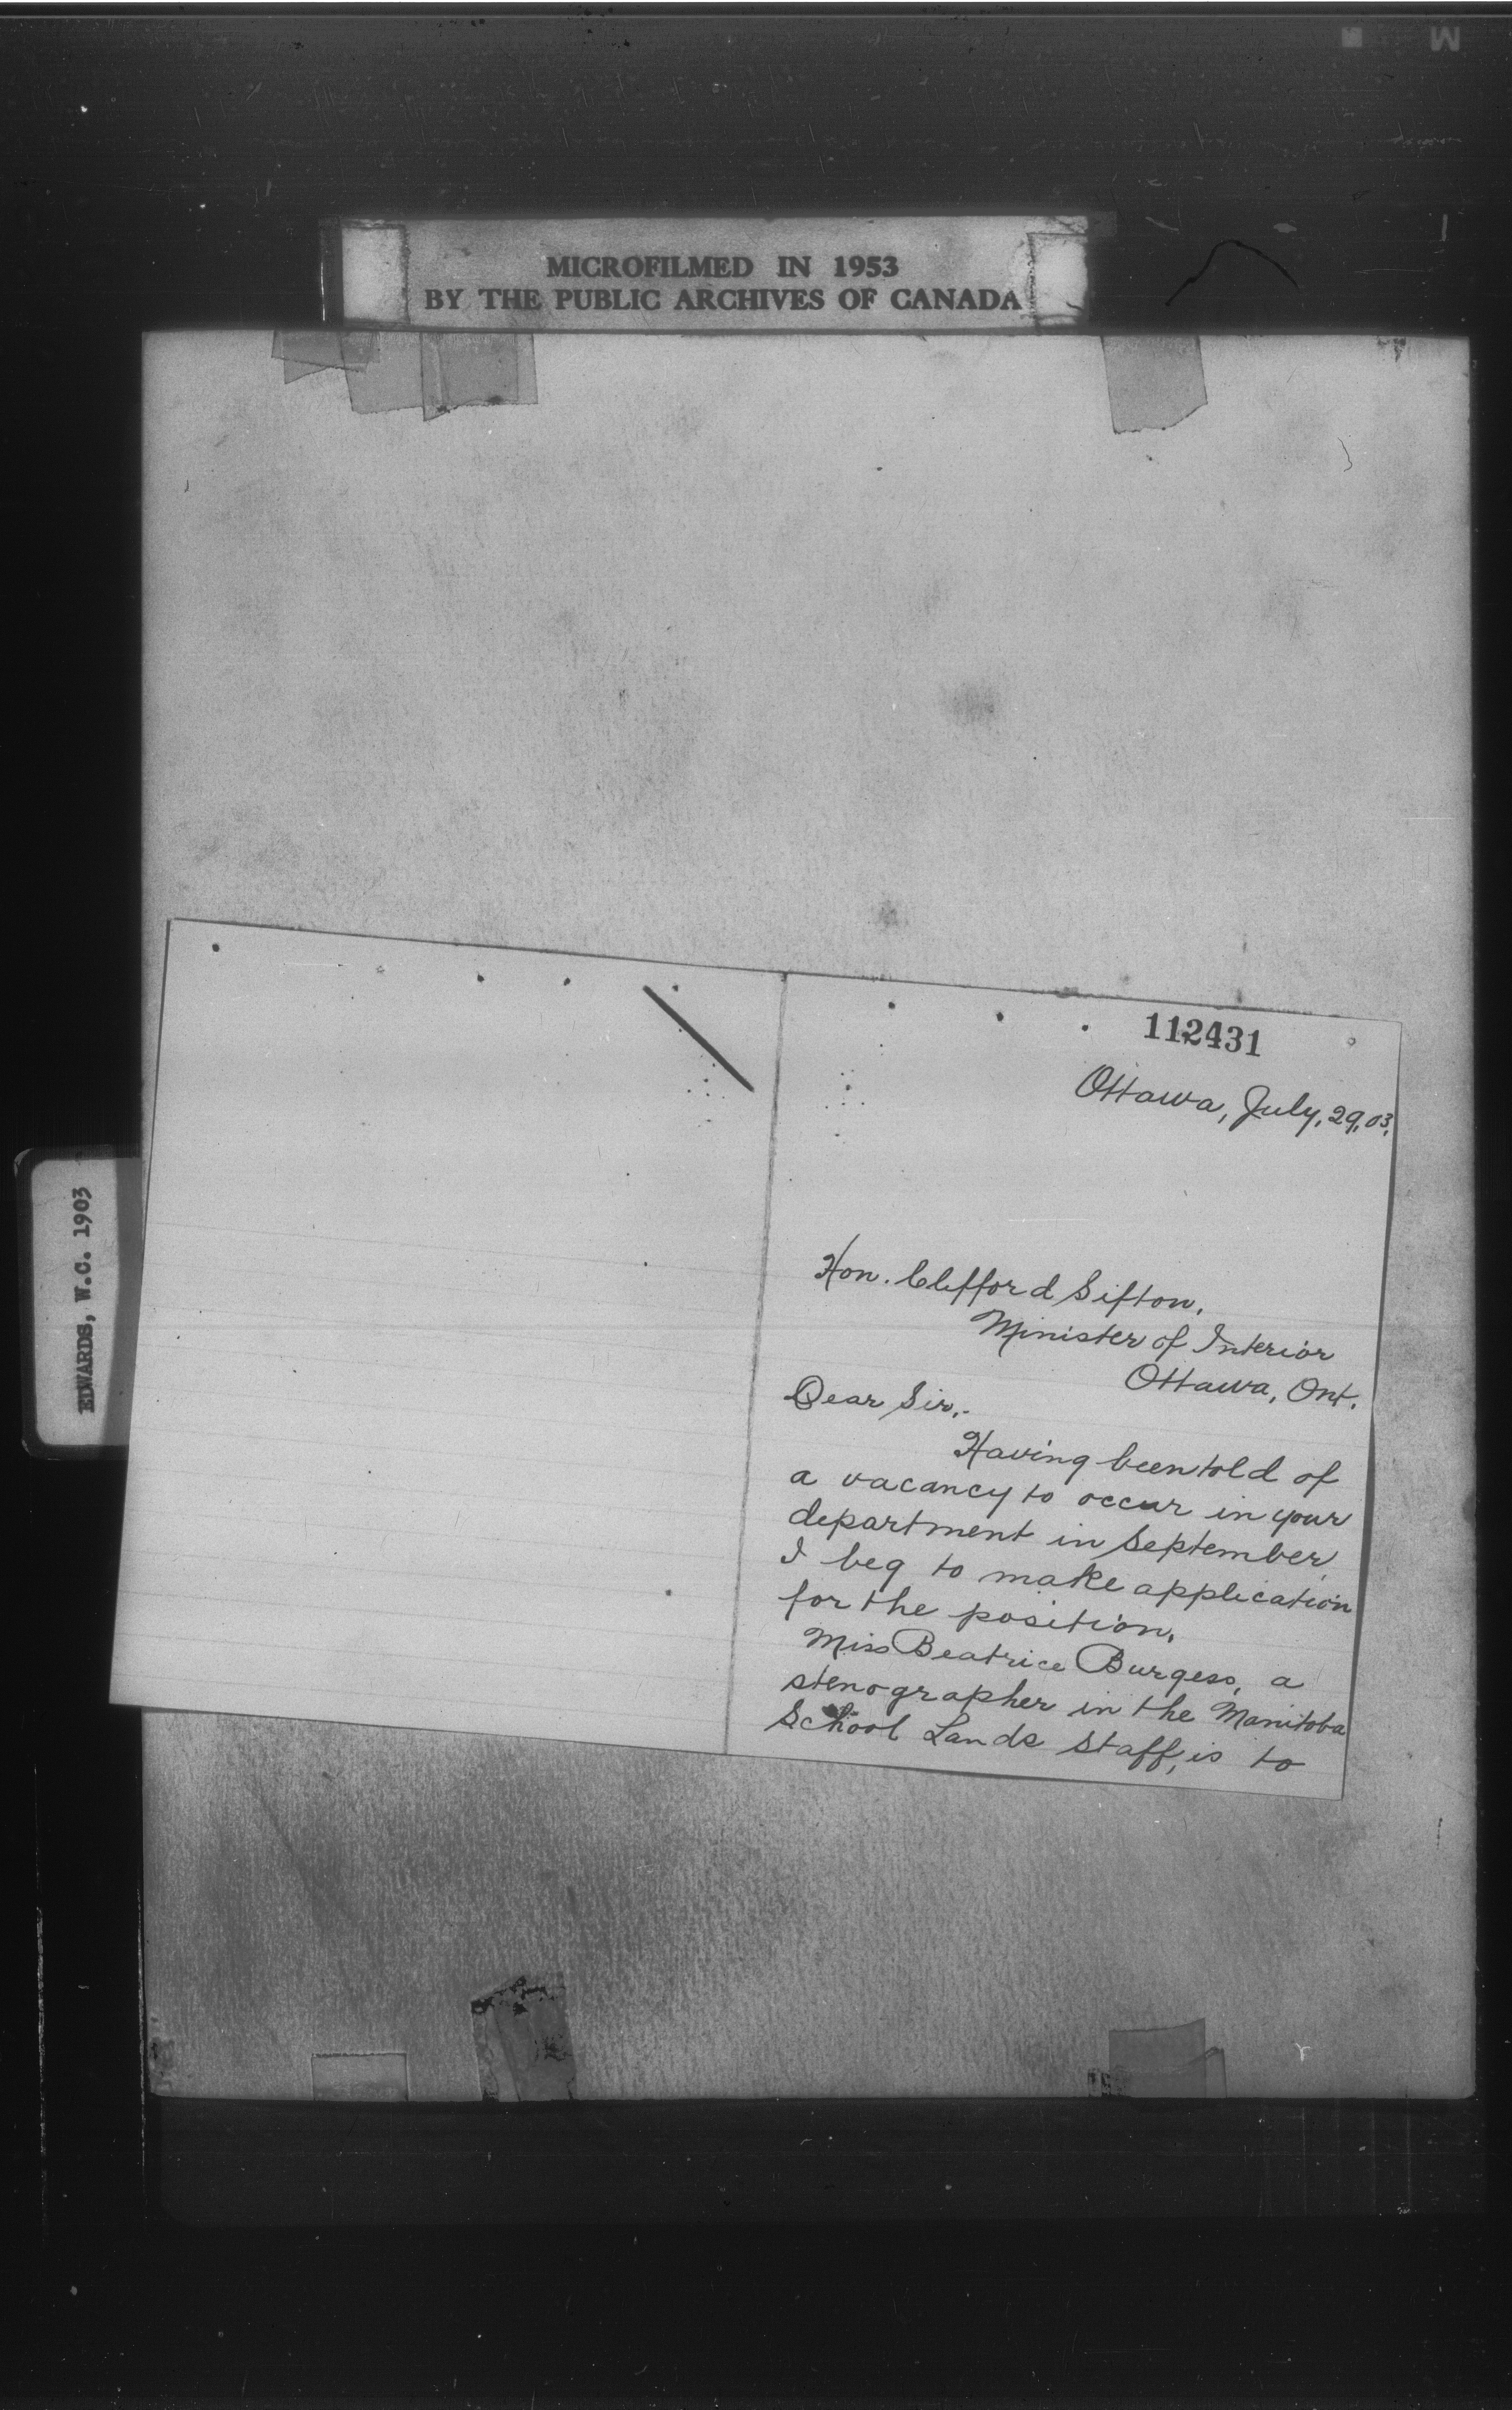 MICROFILMED IN 1953
BY THE PUBLIC ARCHIVES OF CANADA
EDWARDS, W.C. 1903
112431
Ottawa, July, 29, 03,
Hon. Clifford Sifton,
Minister of Interior
Ottawa, Ont.
Dear Sir,-
Having been told of
a vacancy to occur in your
department in September,
I beg to make application
for the position.
Miss Beatrice Burgess, a
stenographer in the Manitoba
School Lands Staff, is to